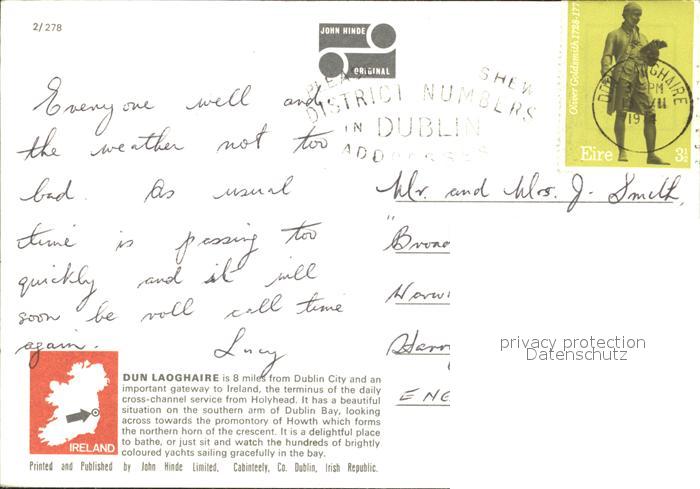 2/278
JOHN HINDE
ORIGINAL
SHEW
DISTRICT NUMBERS
IN DUBLIN
Oliver Goldsmith 1728-177
Eire 3½
Everyone well and
the weather not too
bad. As usual
time is passing too
quickly and it will
soon be roll call time
again. Lucy
Mr. and Mrs. J. Smith,
privacy protection
Datenschutz
IRELAND
DUN LAOGHAIRE is 8 miles from Dublin City and an
important gateway to Ireland, the terminus of the daily
cross-channel service from Holyhead. It has a beautiful
situation on the southern arm of Dublin Bay, looking
across towards the promontory of Howth which forms
the northern horn of the crescent. It is a delightful place
to bathe, or just sit and watch the hundreds of brightly
coloured yachts sailing gracefully in the bay.
Printed and Published by John Hinde Limited, Cabinteely, Co. Dublin, Irish Republic.